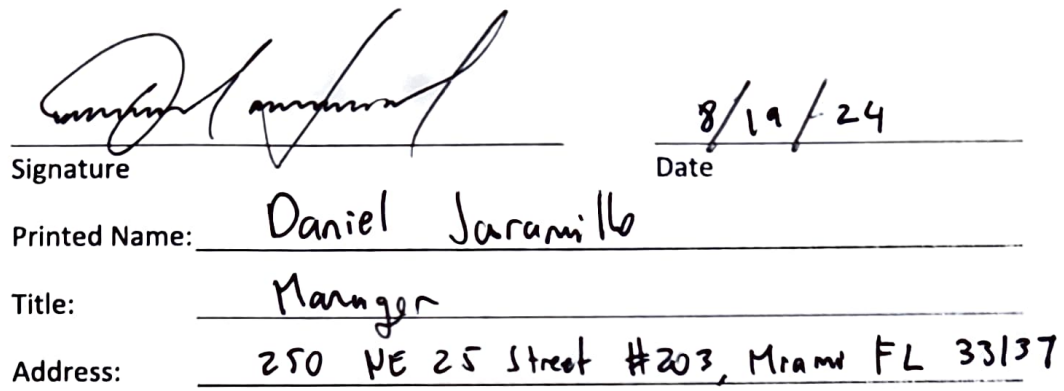 8/19/24
Signature Date
Printed Name: Daniel Jaramillo
Title: Manager
Address: 250 NE 25 Street #203, Miami FL 33137